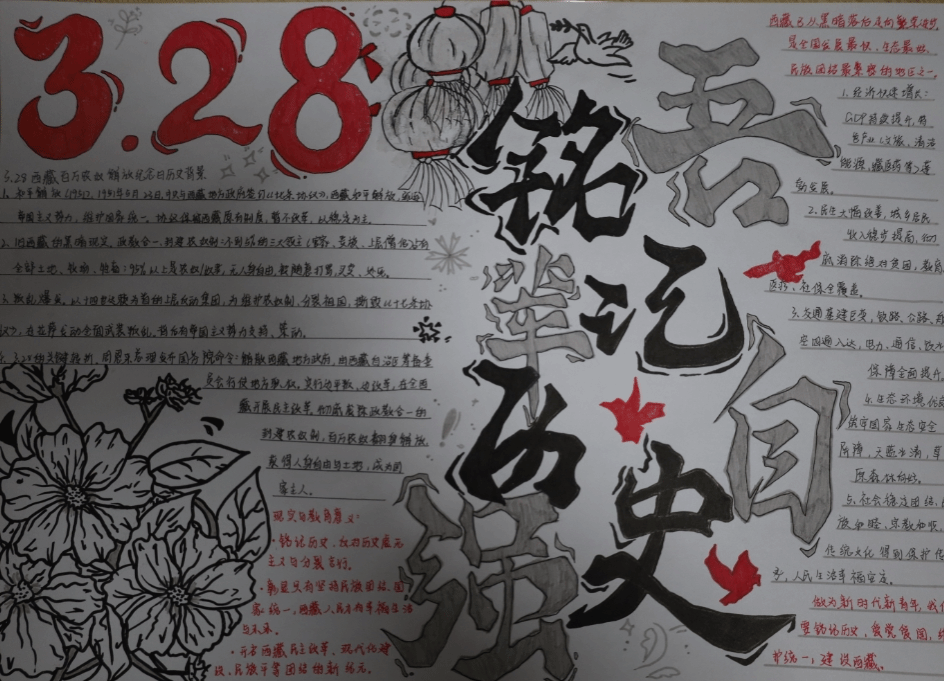 3.28
铭记历史
吾辈自强
3.28西藏百万农奴解放纪念日历史背景
1. 和平解放(1951)，1951年5月23日，中央与西藏地方政府签订《十七条协议》，西藏和平解放，驱逐
帝国主义势力，维护国家统一，协议保留西藏原有制度，暂不改革，以稳定为主。
2. 旧西藏的黑暗现实，政教合一、封建农奴制
三大领主(官家、贵族、上层僧侣)占有
全部土地、牧场、牲畜；95%以上是农奴/奴隶，无人身自由，被随意打骂、买卖、处死。
3. 叛乱爆发，以十四世达赖为首的上层反动集团，为维护农奴制，分裂祖国，撕毁《十七条协
议》，在拉萨发动全面武装叛乱，背后有帝国主义势力支持、策动。
4. 3.28的关键转折，周恩来总理发布国务院命令：解散西藏地方政府，由西藏自治区筹备委
员会行使地方职权，实行边平叛，边改革，在全西
藏开展民主改革，彻底废除政教合一的
封建农奴制，百万农奴翻身解放，
获得人身自由与土地，成为国
家主人。
现实与教育意义：
·铭记历史，反对历史虚无
主义与分裂言行。
·彰显只有坚持民族团结、国
家统一，西藏人民才有幸福生活
与未来。
·开启西藏民主改革、现代化建
设、民族平等团结的新纪元。
西藏已从黑暗落后走向繁荣进步，
是全国发展最快、生态最好、
民族团结最紧密的地区之一。
1. 经济快速增长：
GDP持续提升，特
色产业(文旅、清洁
能源、藏医药等)蓬
勃发展。
2. 民生大幅改善，城乡居民
收入稳步提高，彻
底消除绝对贫困，教育
医疗、社保全覆盖。
3. 交通基建巨变，铁路、公路、
空四通八达，电力、通信、饮水
保障全面提升。
4. 生态环境优
筑牢国家生态安全
屏障，天蓝水清，草
原森林向好。
5. 社会稳定团结，
族和睦，宗教和顺，
传统文化得到保护传
承，人民生活幸福安定。
做为新时代新青年，我们
要铭记历史，爱党爱国，维
护统一，建设西藏。